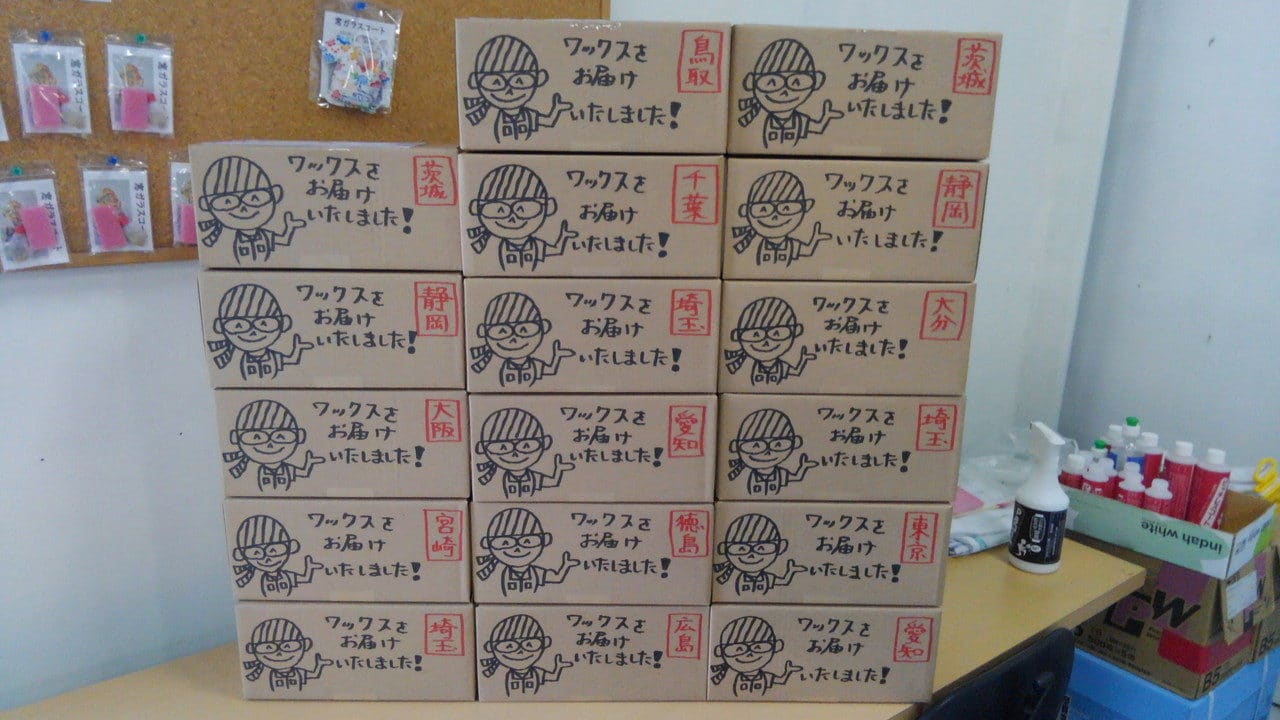 窓ガラスコート
窓ガラスコー
窓ガラスコー
ワックスを
お届け
いたしました!
鳥取
ワックスを
お届け
いたしました!
茨城
ワックスを
お届け
いたしました!
茨城
ワックスを
お届け
いたしました!
千葉
ワックスを
お届け
いたしました!
静岡
ワックスを
お届け
いたしました!
静岡
ワックスを
お届け
いたしました!
埼玉
ワックスを
お届け
いたしました!
大分
ワックスを
お届け
いたしました!
大阪
ワックスを
お届け
いたしました!
愛知
ワックスを
お届け
いたしました!
埼玉
ワックスを
お届け
いたしました!
宮崎
ワックスを
お届け
いたしました!
徳島
ワックスを
お届け
いたしました!
東京
ワックスを
お届け
いたしました!
埼玉
ワックスを
お届け
いたしました!
広島
ワックスを
お届け
いたしました!
愛知
indah white
B5